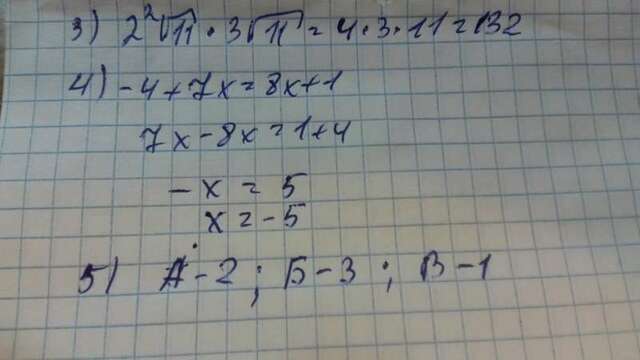 3) 2²√11 · 3√11 = 4·3·11=132
4) -4+7x=8x+1
7x-8x=1+4
-x = 5
x = -5
5) А-2; Б-3; В-1